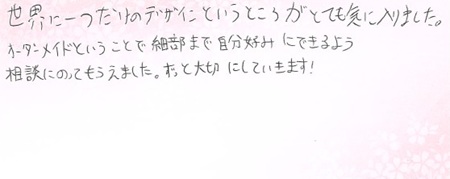 世界に一つだけのデザインというところがとても気に入りました。
オーダーメイドということで細部まで自分好みにできるよう
相談にのってもらえました。ずっと大切にしていきます!